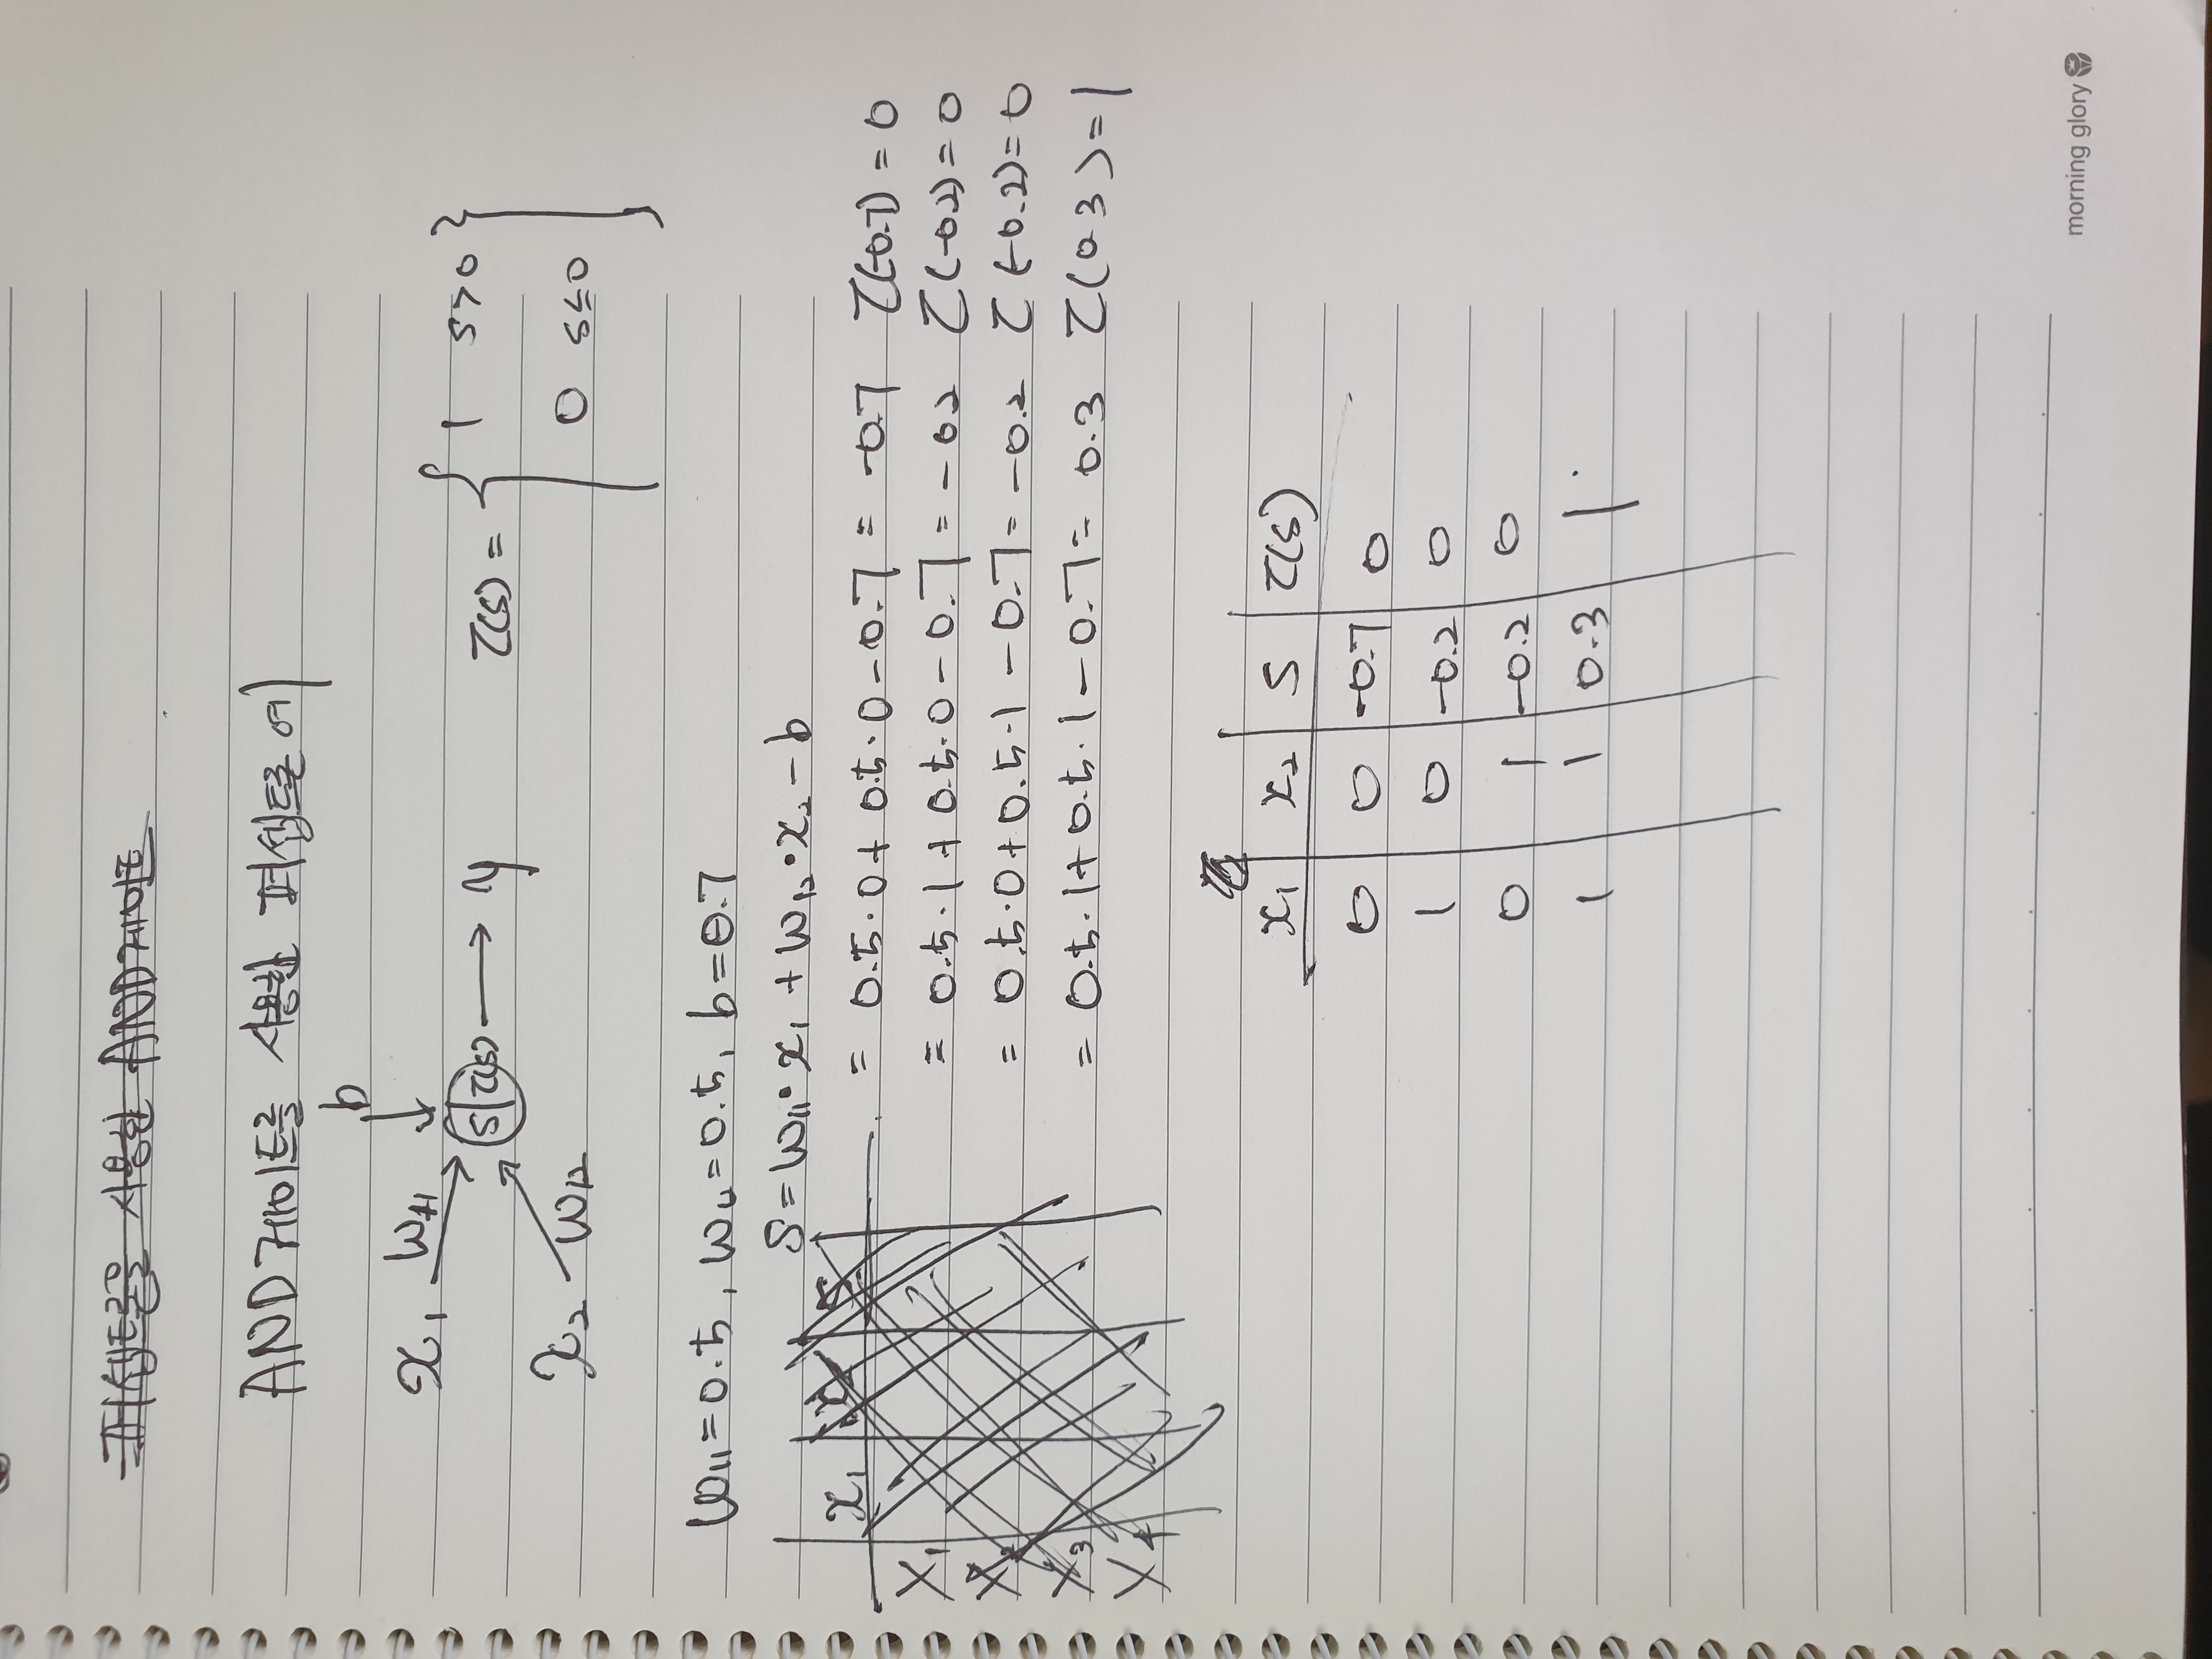 퍼셉트론을 사용한 AND게이트
AND게이트를 사용한 퍼셉트론 예
b
x₁ w₁₁
S τ(s) → y
x₂ w₁₂
τ(s) = { 1 s>0
0 s≤0 }
w₁₁=0.5, w₁₂=0.5, b=0.7
S = w₁₁·x₁ + w₁₂·x₂ - b
= 0.5·0 + 0.5·0 - 0.7 = -0.7 τ(-0.7) = 0
= 0.5·1 + 0.5·0 - 0.7 = -0.2 τ(-0.2) = 0
= 0.5·0 + 0.5·1 - 0.7 = -0.2 τ(-0.2) = 0
= 0.5·1 + 0.5·1 - 0.7 = 0.3 τ(0.3) = 1
x₁ x₂ S
X₁
X₂
X₃
X₄
x₁ x₂ S τ(s)
0 0 -0.7 0
1 0 -0.2 0
0 1 -0.2 0
1 1 0.3 1
morning glory